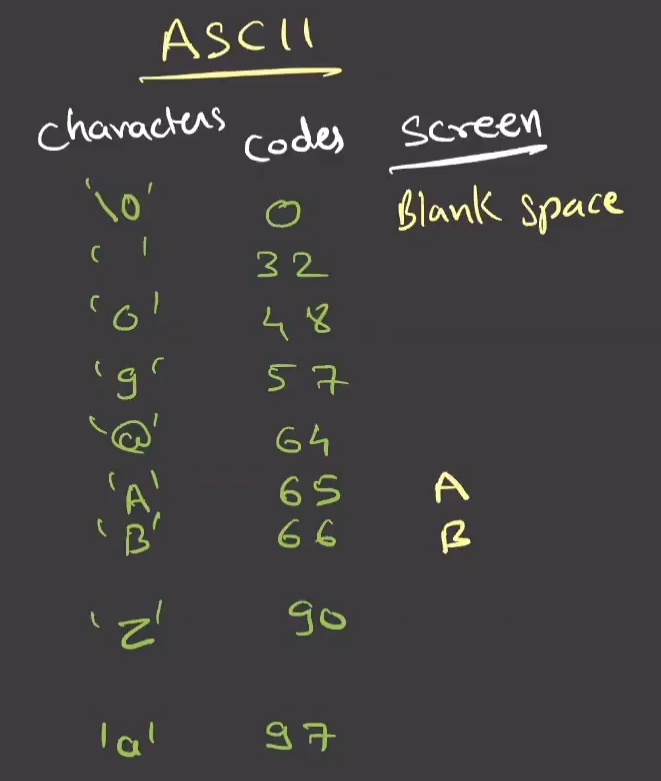 ASCII
Characters Codes Screen
'\0' 0 Blank Space
' ' 32
'0' 48
'9' 57
'@' 64
'A' 65 A
'B' 66 B
'Z' 90
'a' 97